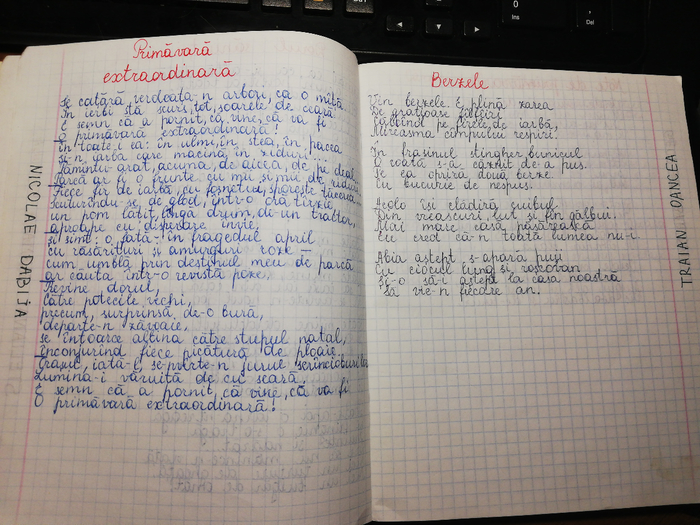 Primăvară
extraordinară
Se cațără, verdeața-n arbori, ca o mâță
În ierbi stă scurs, tot, soarele de ceară
E semn că a pornit, că vine, că va fi
O primăvară extraordinară!
În toate-i ea: în ulmi, în stea, în pacea
și-n iarba care macină în ziduri...
Pământu-arat, acuma, de aici, de pe deal
Parcă ar fi o frunte cu mii și mii de riduri
Fiece fir de iarbă, cu foșnetul, sporește tăcerea
Scuturându-se, de glod, într-o oră târzie,
un pom lătit, lângă drum, de un tractor,
aproape cu disperare învie,
și simt: o fată-n fragedul april
cu răsărituri și amurguri roze —
cum umblă prin destinul meu de parcă
ar căuta într-o revistă poze.
Revine dorul,
către potecile vechi,
precum, surprinsă de-o bură,
departe-n zăvoaie,
se întoarce albina către stupul natal,
înconjurînd fiece picătură de ploaie.
Graiul, iată-l, se-nvârte-n jurul scrînciobului
Lumina-i văruită de cu seară,
E semn că a pornit, că vine, că va fi
O primăvară extraordinară!
NICOLAE DABIJA
Berzele
Vin berzele. E plină zarea
De grațioase fâlfâiri
Călcînd pe perele de iarbă,
Mireasma câmpului respiri.
În frasinul stingher bunicul
O roată s-a căznit de-a pus.
Se ea opriră două berze
Cu bucurie de nespus.
Acolo își clădiră cuibul
Din vreascuri, lut și fin gălbui.
Mai mare casă păsărească
Eu cred că-n toată lumea nu-i.
Abia aștept s-apară pui
Cu ciocul lung și roșcovan
Și-o să-i aștept la casa noastră
Să vie-n fiecare an.
TRAIAN OANCEA
0
Ins
Del